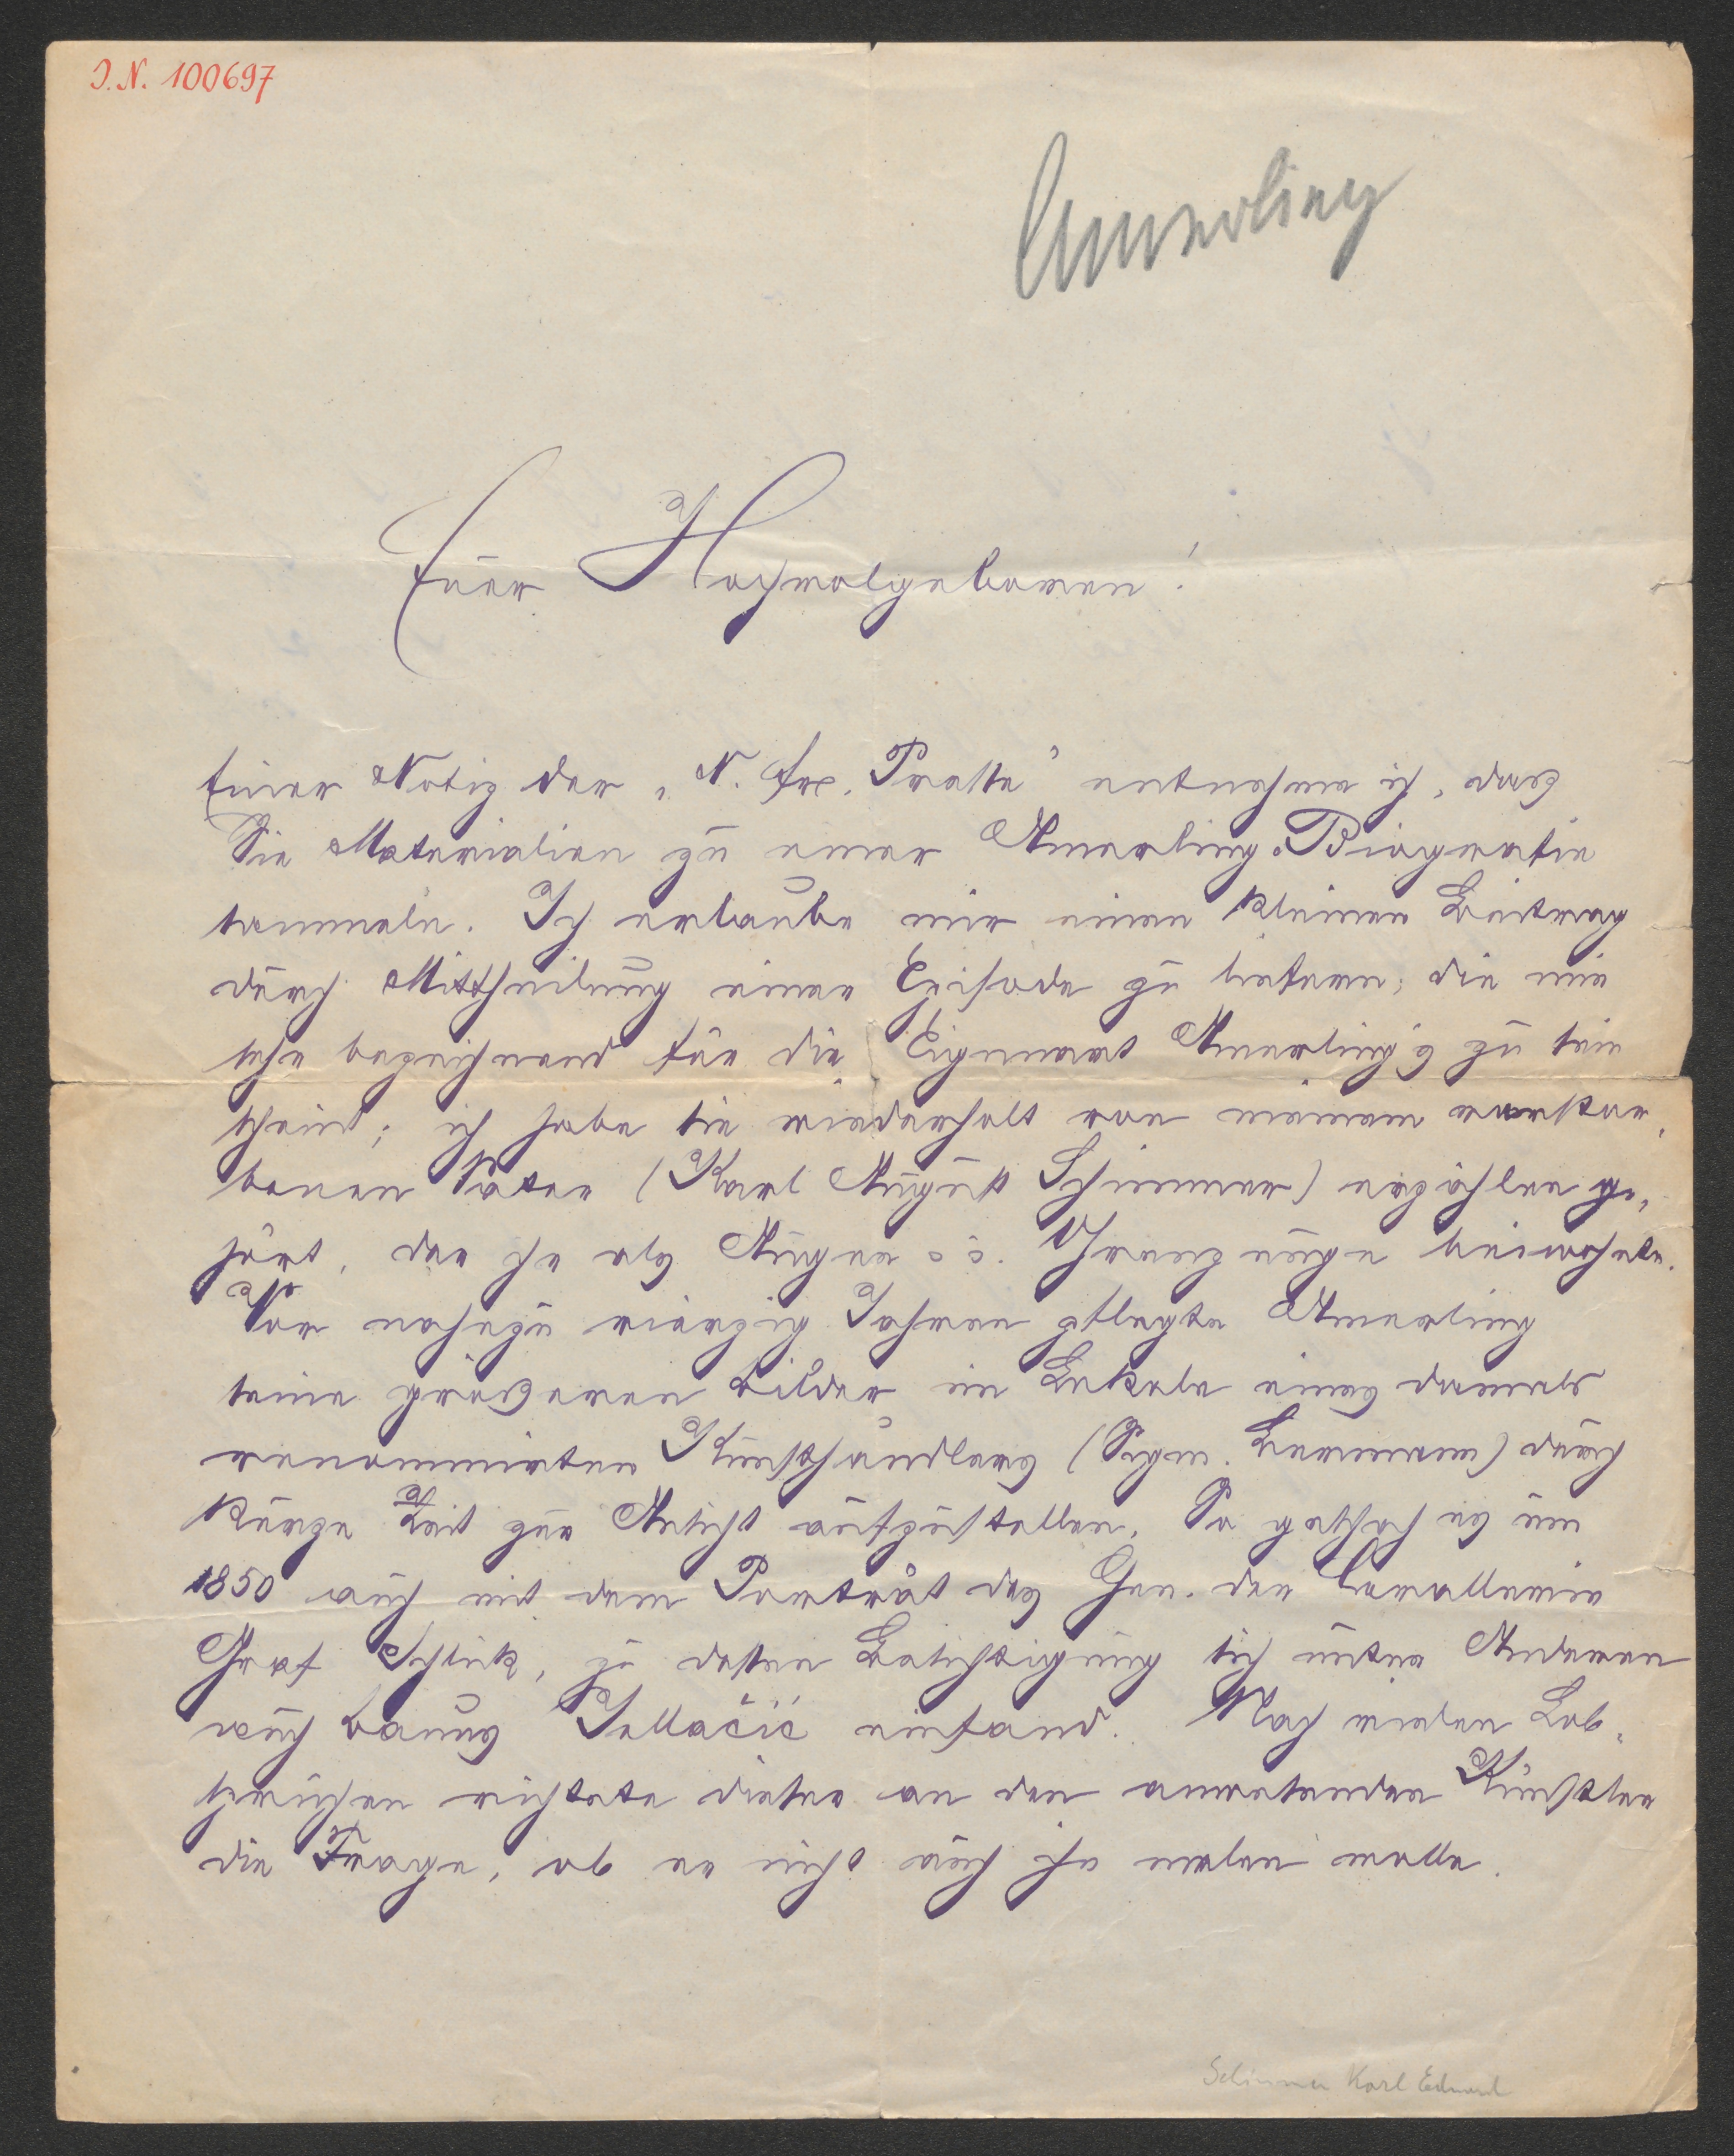 I.N. 100697
Amerling
Euer Hochwolgeboren!
Einer Notiz der „N. fr. Presse" entnehme ich, dass
Sie Materialien zu einer Amerling-Biografie
sammeln. Ich erlaube mir einen kleinen Beitrag
durch Mittheilung einer Episode zu liefern, die mir
sehr bezeichnend für die Eigenart Amerling's zu sein
scheint; ich habe sie wiederholt von meinem verstor-
benen Vater (Karl August Schimmer) erzählen ge-
hört, der ihr als Augen u. Ohrenzeuge beiwohnte.
Vor nahezu vierzig Jahren pflegte Amerling
seine größeren Bilder im Lokale eines damals
renommirten Kunsthändlers (Sigm. Bermann) durch
kurze Zeit zur Ansicht aufzustellen. So geschah es um
1850 auch mit dem Porträt des Gen. der Cavallerie
Graf Schlik, zu dessen Besichtigung sich unter Anderen
auch Banus Jellačić einfand. Nach vielen Lob-
sprüchen richtete dieser an den anwesenden Künstler
die Frage, ob er nicht auch ihn malen wolle.
Schimmer Karl Eduard